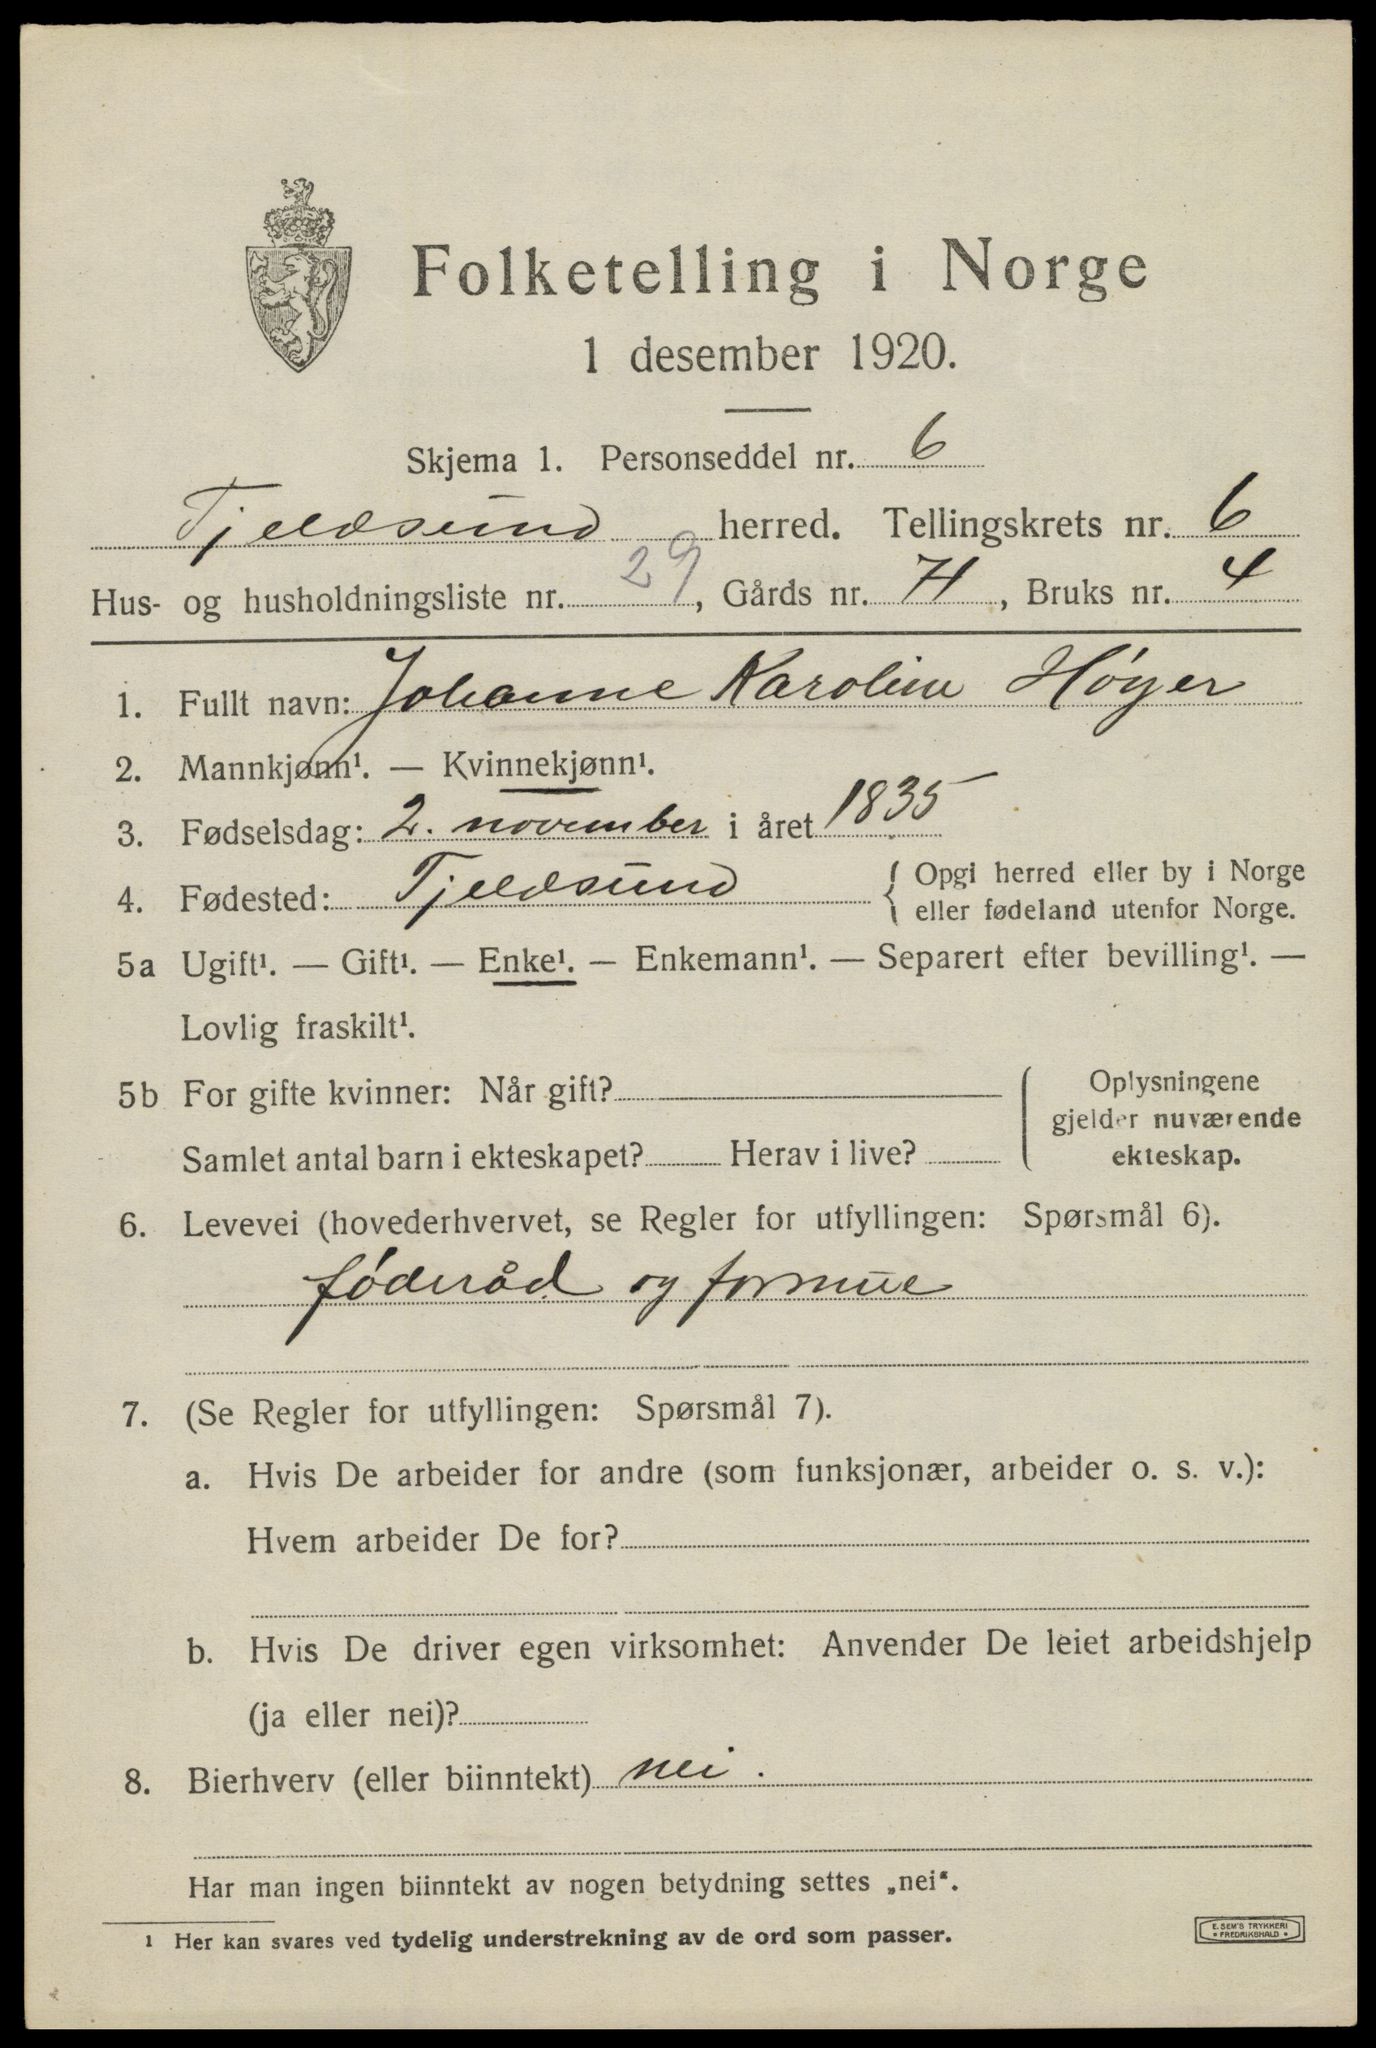 Folketelling i Norge
1 desember 1920.
Skjema 1. Personseddel nr. 6
Tjeldsund herred. Tellingskrets nr. 6
Hus- og husholdningsliste nr. 29, Gårds nr. 74, Bruks nr. 4
1. Fullt navn: Johanne Karoline Høyer
2. Mannkjønn¹. — Kvinnekjønn¹.
3. Fødselsdag: 2. november i året 1835
4. Fødested: Tjeldsund { Opgi herred eller by i Norge
eller fødeland utenfor Norge.
5a Ugift¹. — Gift¹. — Enke¹. — Enkemann¹. — Separert efter bevilling¹. —
Lovlig fraskilt¹.
5b For gifte kvinner: Når gift?
Samlet antal barn i ekteskapet? Herav i live?
Oplysningene
gjelder nuværende
ekteskap.
6. Levevei (hovederhvervet, se Regler for utfyllingen: Spørsmål 6).
føderåd og formue
7. (Se Regler for utfyllingen: Spørsmål 7).
a. Hvis De arbeider for andre (som funksjonær, arbeider o. s. v.):
Hvem arbeider De for?
b. Hvis De driver egen virksomhet: Anvender De leiet arbeidshjelp
(ja eller nei)?
8. Bierhverv (eller biinntekt) nei.
Har man ingen biinntekt av nogen betydning settes „nei“.
1 Her kan svares ved tydelig understrekning av de ord som passer.
E. SEM'S TRYKKERI
• FREDRIKSHALD •